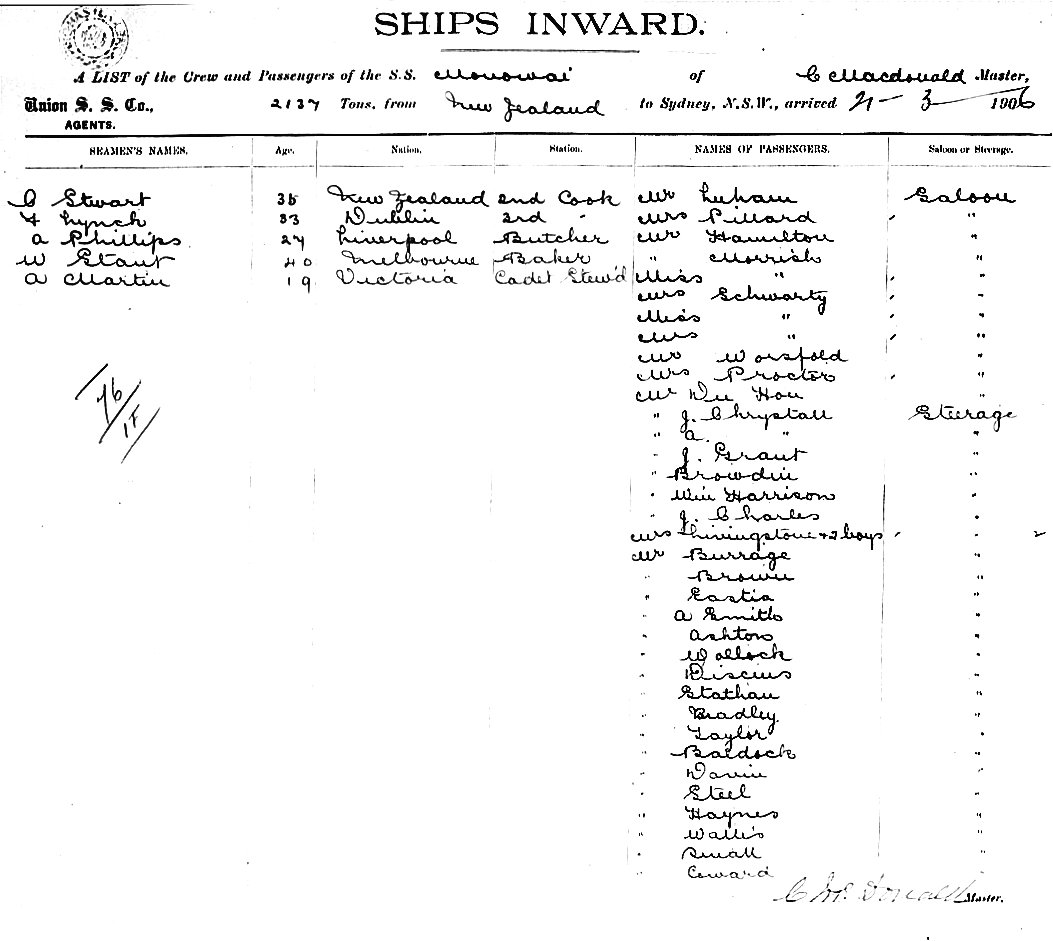 SHIPS INWARD.
A LIST of the Crew and Passengers of the S.S. Monowai of C Macdonald Master,
Union S. S. Co., 2137 Tons, from New Zealand to Sydney, N.S.W., arrived 21-3 1906
AGENTS.
SEAMEN'S NAMES. Age. Nation. Station. NAMES OF PASSENGERS. Saloon or Steerage.
C Stewart 35 New Zealand 2nd Cook Mr Luham Saloon
Lynch 33 Dublin 3rd " Mrs Pillard "
A Phillips 27 Liverpool Butcher Mr Hamilton "
W Staut 40 Melbourne Baker " Morrish "
A Martin 19 Victoria Cadet Stew'd Miss " "
Mrs Schwarty "
Miss " "
Mrs " "
Mr Worsfold "
Mrs Proctor "
Mr Hou
" J. Chrystall Steerage
" A. " "
" J. Grant "
" Browdin "
" Wm Harrison "
" J. Charles "
Mrs Livingstone + 2 boys " 2
Mr Burrage "
" Brown "
" Eastia "
" A Smith "
" Ashton "
" Wollock "
" "
" Stathau "
" Bradley "
" Taylor "
" Baldock "
" "
" Steel "
" Haynes "
" Wallis "
" Small "
" Coward
Master.